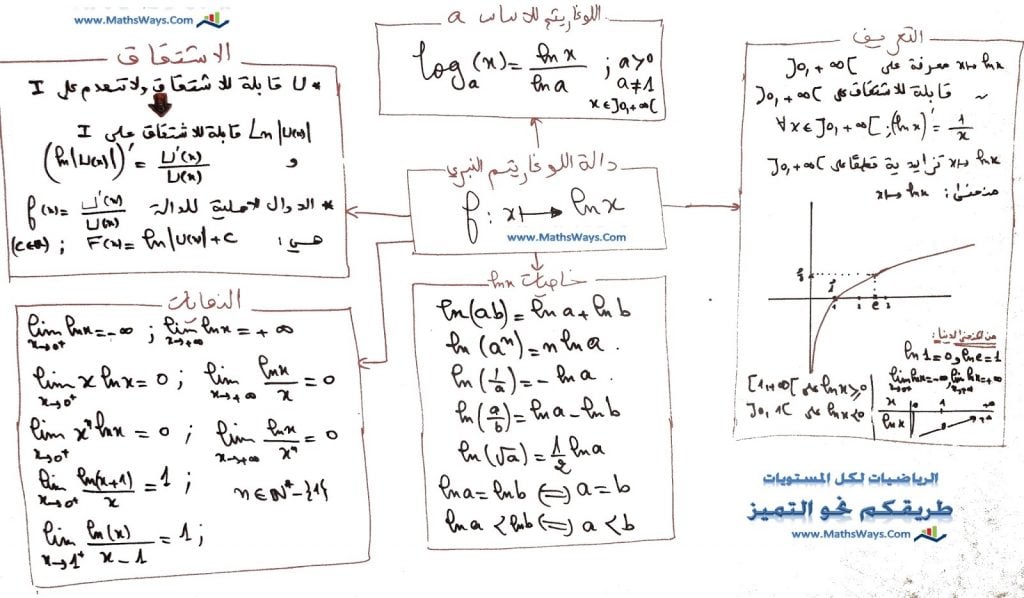 www.MathsWays.Com
اللوغاريتم للأساس a
log_a(x) = ln x / ln a ; a>0
a≠1
x∈]0,+∞[
الاشتقاق
* U قابلة للاشتقاق ولا تنعدم على I
Ln|U(x)| قابلة للاشتقاق على I
و (ln|U(x)|)' = U'(x)/U(x)
* الدوال الأصلية للدالة f(x) = U'(x)/U(x)
هي: F(x) = ln|U(x)|+C ; (C∈ℝ)
دالة اللوغاريتم النبيري
f : x ↦ ln x
www.MathsWays.Com
التعريف
x↦ln x معرفة على ]0,+∞[
~ قابلة للاشتقاق على ]0,+∞[
∀x∈]0,+∞[ ; (ln x)' = 1/x
x↦ln x تزايدية قطعا على ]0,+∞[
منحنى: x↦ln x
1
e
من المنحنى لدينا:
ln1=0 و lne=1
lim ln x=-∞ x→0⁺ , lim ln x=+∞ x→+∞
ln x≥0 على [1,+∞[
ln x<0 على ]0,1[
x 0 1 +∞
ln x
النهايات
lim ln x = -∞ x→0⁺ ; lim ln x = +∞ x→+∞
lim x ln x = 0 x→0⁺ ; lim ln x/x = 0 x→+∞
lim xⁿ ln x = 0 x→0⁺ ; lim ln x/xⁿ = 0 x→+∞
lim ln(x+1)/x = 1 x→0⁺ ; n∈ℕ*-{1}
lim ln(x)/(x-1) = 1 x→1⁺ ;
خاصيات ln x
ln(ab) = ln a + ln b
ln(aⁿ) = n ln a .
ln(1/a) = - ln a .
ln(a/b) = ln a - ln b
ln(√a) = 1/2 ln a
ln a = ln b ⟺ a = b
ln a < ln b ⟺ a < b
الرياضيات لكل المستويات
طريقكم نحو التميز
www.MathsWays.Com